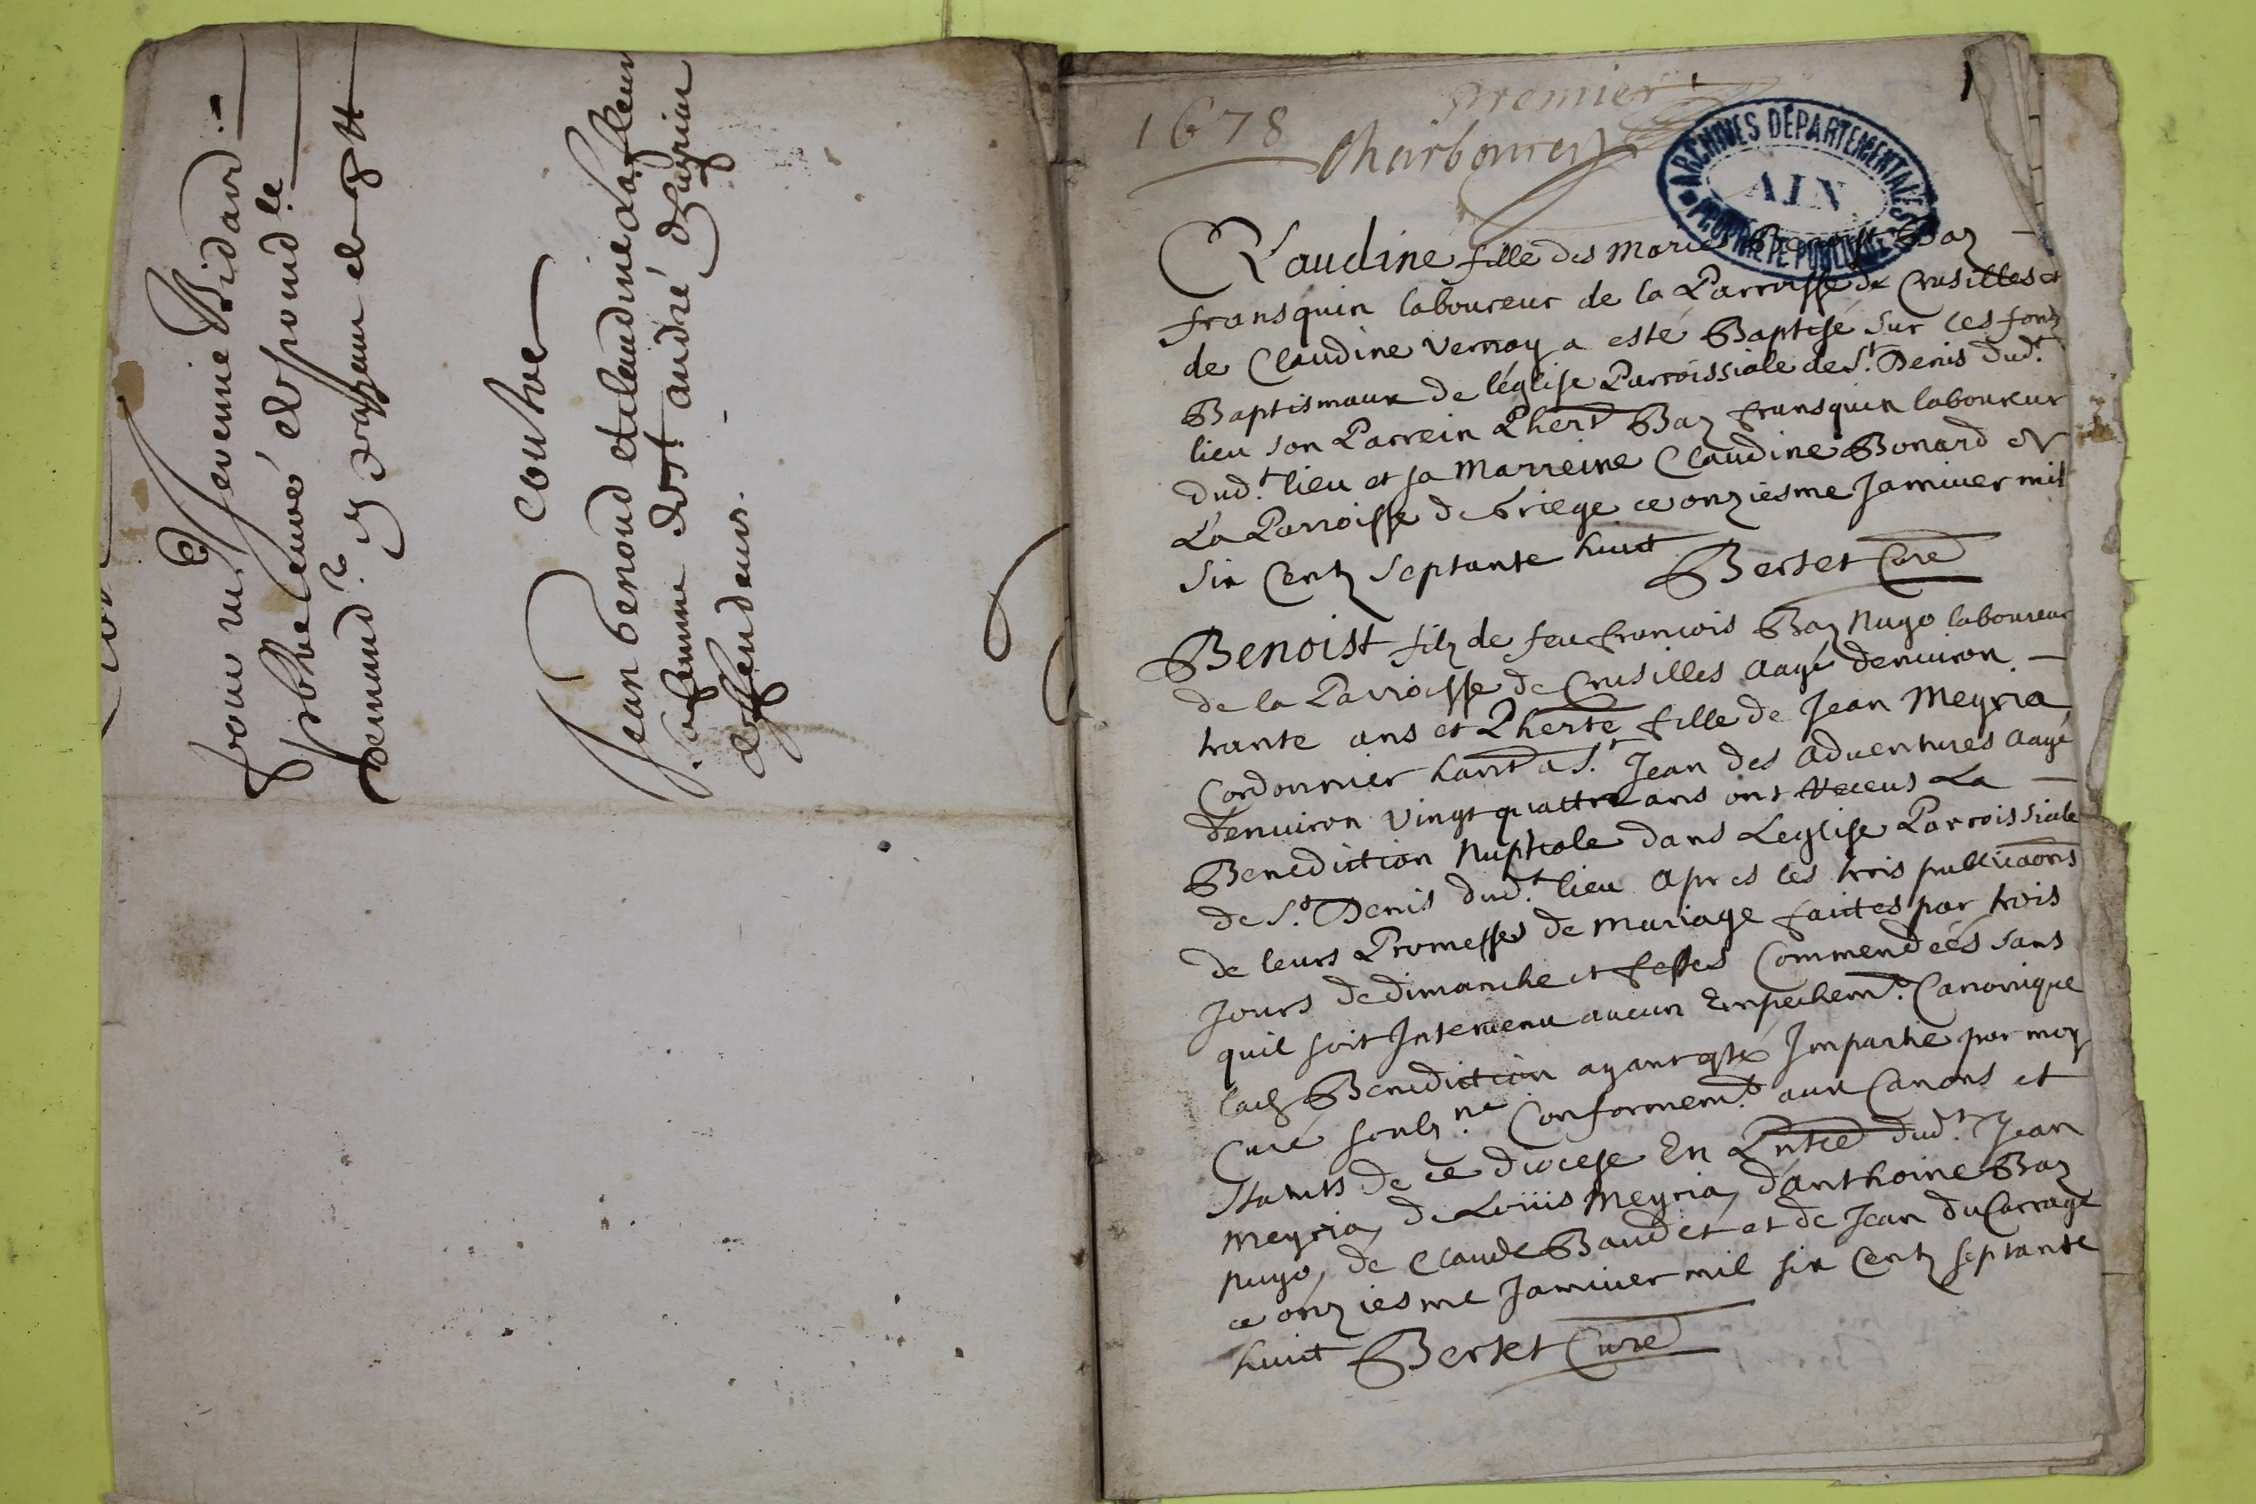 pour m.e Jevenne Bidard .-
pbre curé de pond le
demand.r
contre
Jean benoud et claudine
sa femme de st. andré
deffendeurs.
1678
premier
Charbon
1
ARCHIVES DÉPARTEMENTALES
AIN
PROPRIÉTÉ PUBLIQUE
Claudine fille des mariés Benoist Baz
fransquin laboureur de la Parroisse de Crusilles et
de Claudine Vernay a esté Baptisé sur les fonz
Baptismaux de léglise Parroissiale de St. Denis dud.t
lieu son Parrein Phert Baz fransquin laboureur
dud.t lieu et sa Marreine Claudine Bonard de
La Parroisse de Griege ce onziesme Januier mil
six Centz septante huict
Bertet Curé
Benoist filz de feu francois Baz Nugo laboureur
de la Parroisse de Crusilles aagé denuiron
trante ans et Pherte fille de Jean Meyria
Cordonnier hant a St. Jean des Aduentures aagé
denuiron vingt quattre ans ont Receus La
Benediction Nuptiale dans Leglise Parroissiale
de St. Denis dud.t lieu apres les trois publicaons
de leurs Promesses de mariage faictes par trois
Jours de dimanche et festes Commendées sans
quil soit Interuenu aucun Empechem.t Canonique
lad Benediction ayant esté Impartie par moy
Curé soubz.né Conformem.t aux Canons et
Statuts de ce diocese En Pntce dud.t Jean
Meyria, de Louis Meyria, danthoine Baz
nugo, de Claude Baudet et de Jean du Carrage
ce onziesme Januier mil six Centz septante
huict Bertet Curé